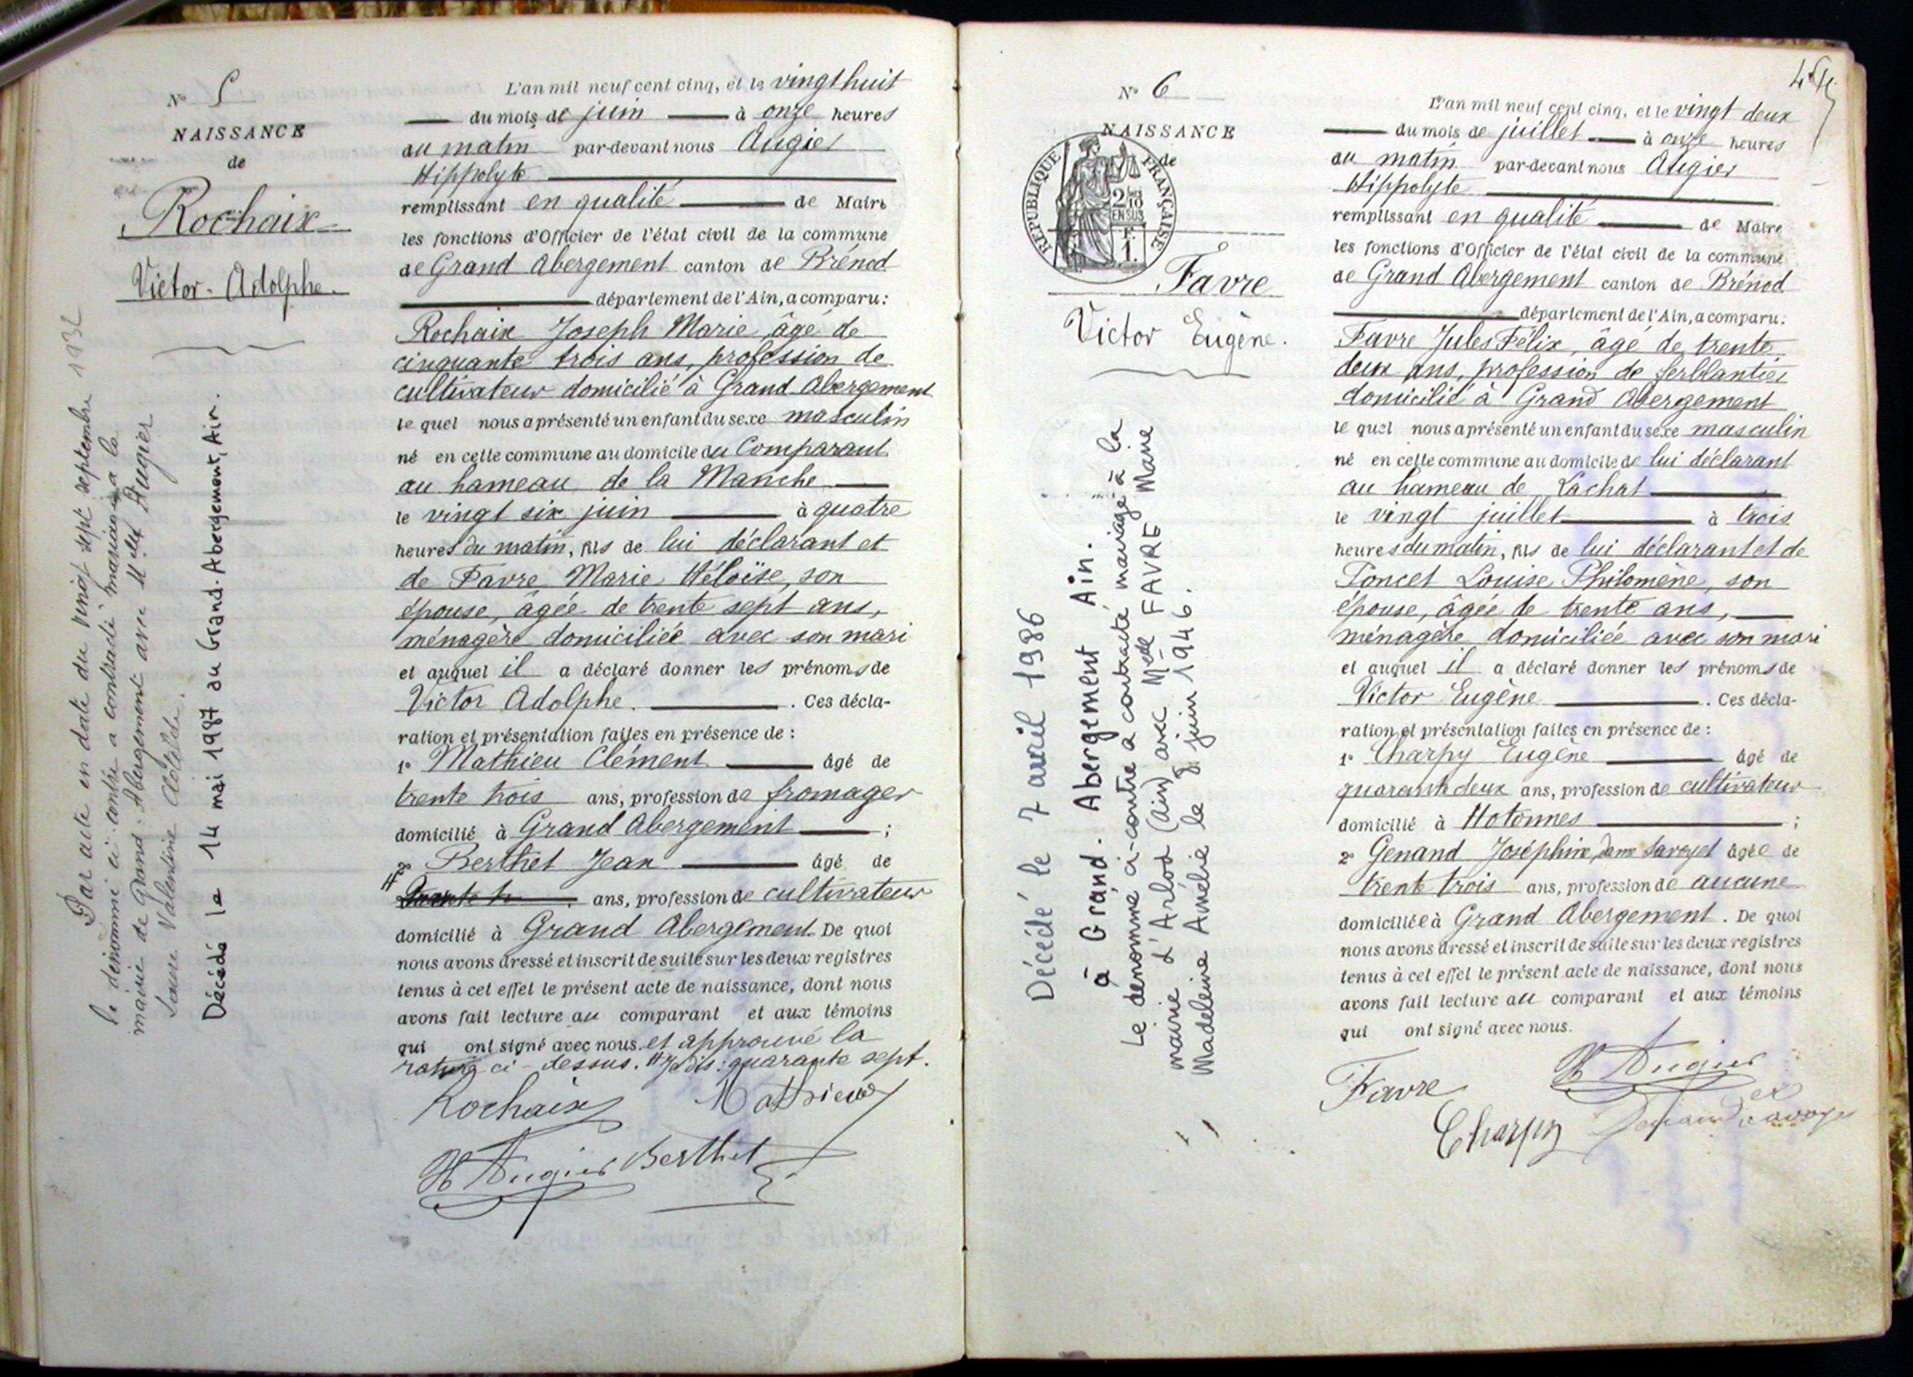 N° 5
NAISSANCE
de
Rochaix
Victor-Adolphe.
Par acte en date du vingt sept septembre 1932
le dénommé ci-contre a contracté mariage à la
mairie de Grand-Abergement avec Melle Augier
Laure Valentine Clotilde.
Décédé le 14 mai 1987 au Grand-Abergement, Ain.
L'an mil neuf cent cinq, et le vingt huit
du mois de juin à onze heures
du matin par-devant nous Augier
Hippolyte
remplissant en qualité de Maire
les fonctions d'Officier de l'état civil de la commune
de Grand Abergement canton de Brénod
département de l'Ain, a comparu:
Rochaix Joseph Marie âgé de
cinquante trois ans, profession de
cultivateur domicilié à Grand Abergement
le quel nous a présenté un enfant du sexe masculin
né en cette commune au domicile du Comparant
au hameau de la Manche
le vingt six juin à quatre
heures du matin, fils de lui déclarant et
de Favre Marie Héloïse, son
épouse, âgée de trente sept ans,
ménagère domiciliée avec son mari
et auquel il a déclaré donner les prénoms de
Victor Adolphe. . Ces décla-
ration et présentation faites en présence de :
1° Mathieu Clément âgé de
trente trois ans, profession de fromager
domicilié à Grand Abergement ;
2° Berthet Jean âgé de
ans, profession de cultivateur
domicilié à Grand Abergement. De quoi
nous avons dressé et inscrit de suite sur les deux registres
tenus à cet effet le présent acte de naissance, dont nous
avons fait lecture au comparant et aux témoins
qui ont signé avec nous. et approuvé la
rature ci-dessus. # Je dis: quarante sept.
Rochaix Mathieu
H Augier Berthet
N° 6
NAISSANCE
de
RÉPUBLIQUE FRANÇAISE
2/10
EN SUS
1.
Favre
Victor Eugène.
Décédé le 7 avril 1986
à Grand. Abergement Ain.
Le dénommé ci-contre a contracté mariage à la
mairie d'Arlod (Ain) avec Melle FAVRE Marie
Madeleine Amélie le 8 juin 1946.
L'an mil neuf cent cinq, et le vingt deux
du mois de juillet à onze heures
du matin par-devant nous Augier
Hippolyte
remplissant en qualité de Maire
les fonctions d'Officier de l'état civil de la commune
de Grand Abergement canton de Brénod
département de l'Ain, a comparu:
Favre Jules Félix, âgé de trente
deux ans, profession de ferblantier
domicilié à Grand Abergement
le quel nous a présenté un enfant du sexe masculin
né en cette commune au domicile de lui déclarant
au hameau de Lachat
le vingt juillet à trois
heures du matin, fils de lui déclarant et de
Poncet Louise Philomène, son
épouse, âgée de trente ans,
ménagère domiciliée avec son mari
et auquel il a déclaré donner les prénoms de
Victor Eugène . Ces décla-
ration et présentation faites en présence de :
1° Charpy Eugène âgé de
quarante deux ans, profession de cultivateur
domicilié à Hotonnes ;
2° Genand Joséphine, dame Savoyet âgée de
trente trois ans, profession de aucune
domiciliée à Grand Abergement. De quoi
nous avons dressé et inscrit de suite sur les deux registres
tenus à cet effet le présent acte de naissance, dont nous
avons fait lecture au comparant et aux témoins
qui ont signé avec nous.
H Augier
Favre
Charpy